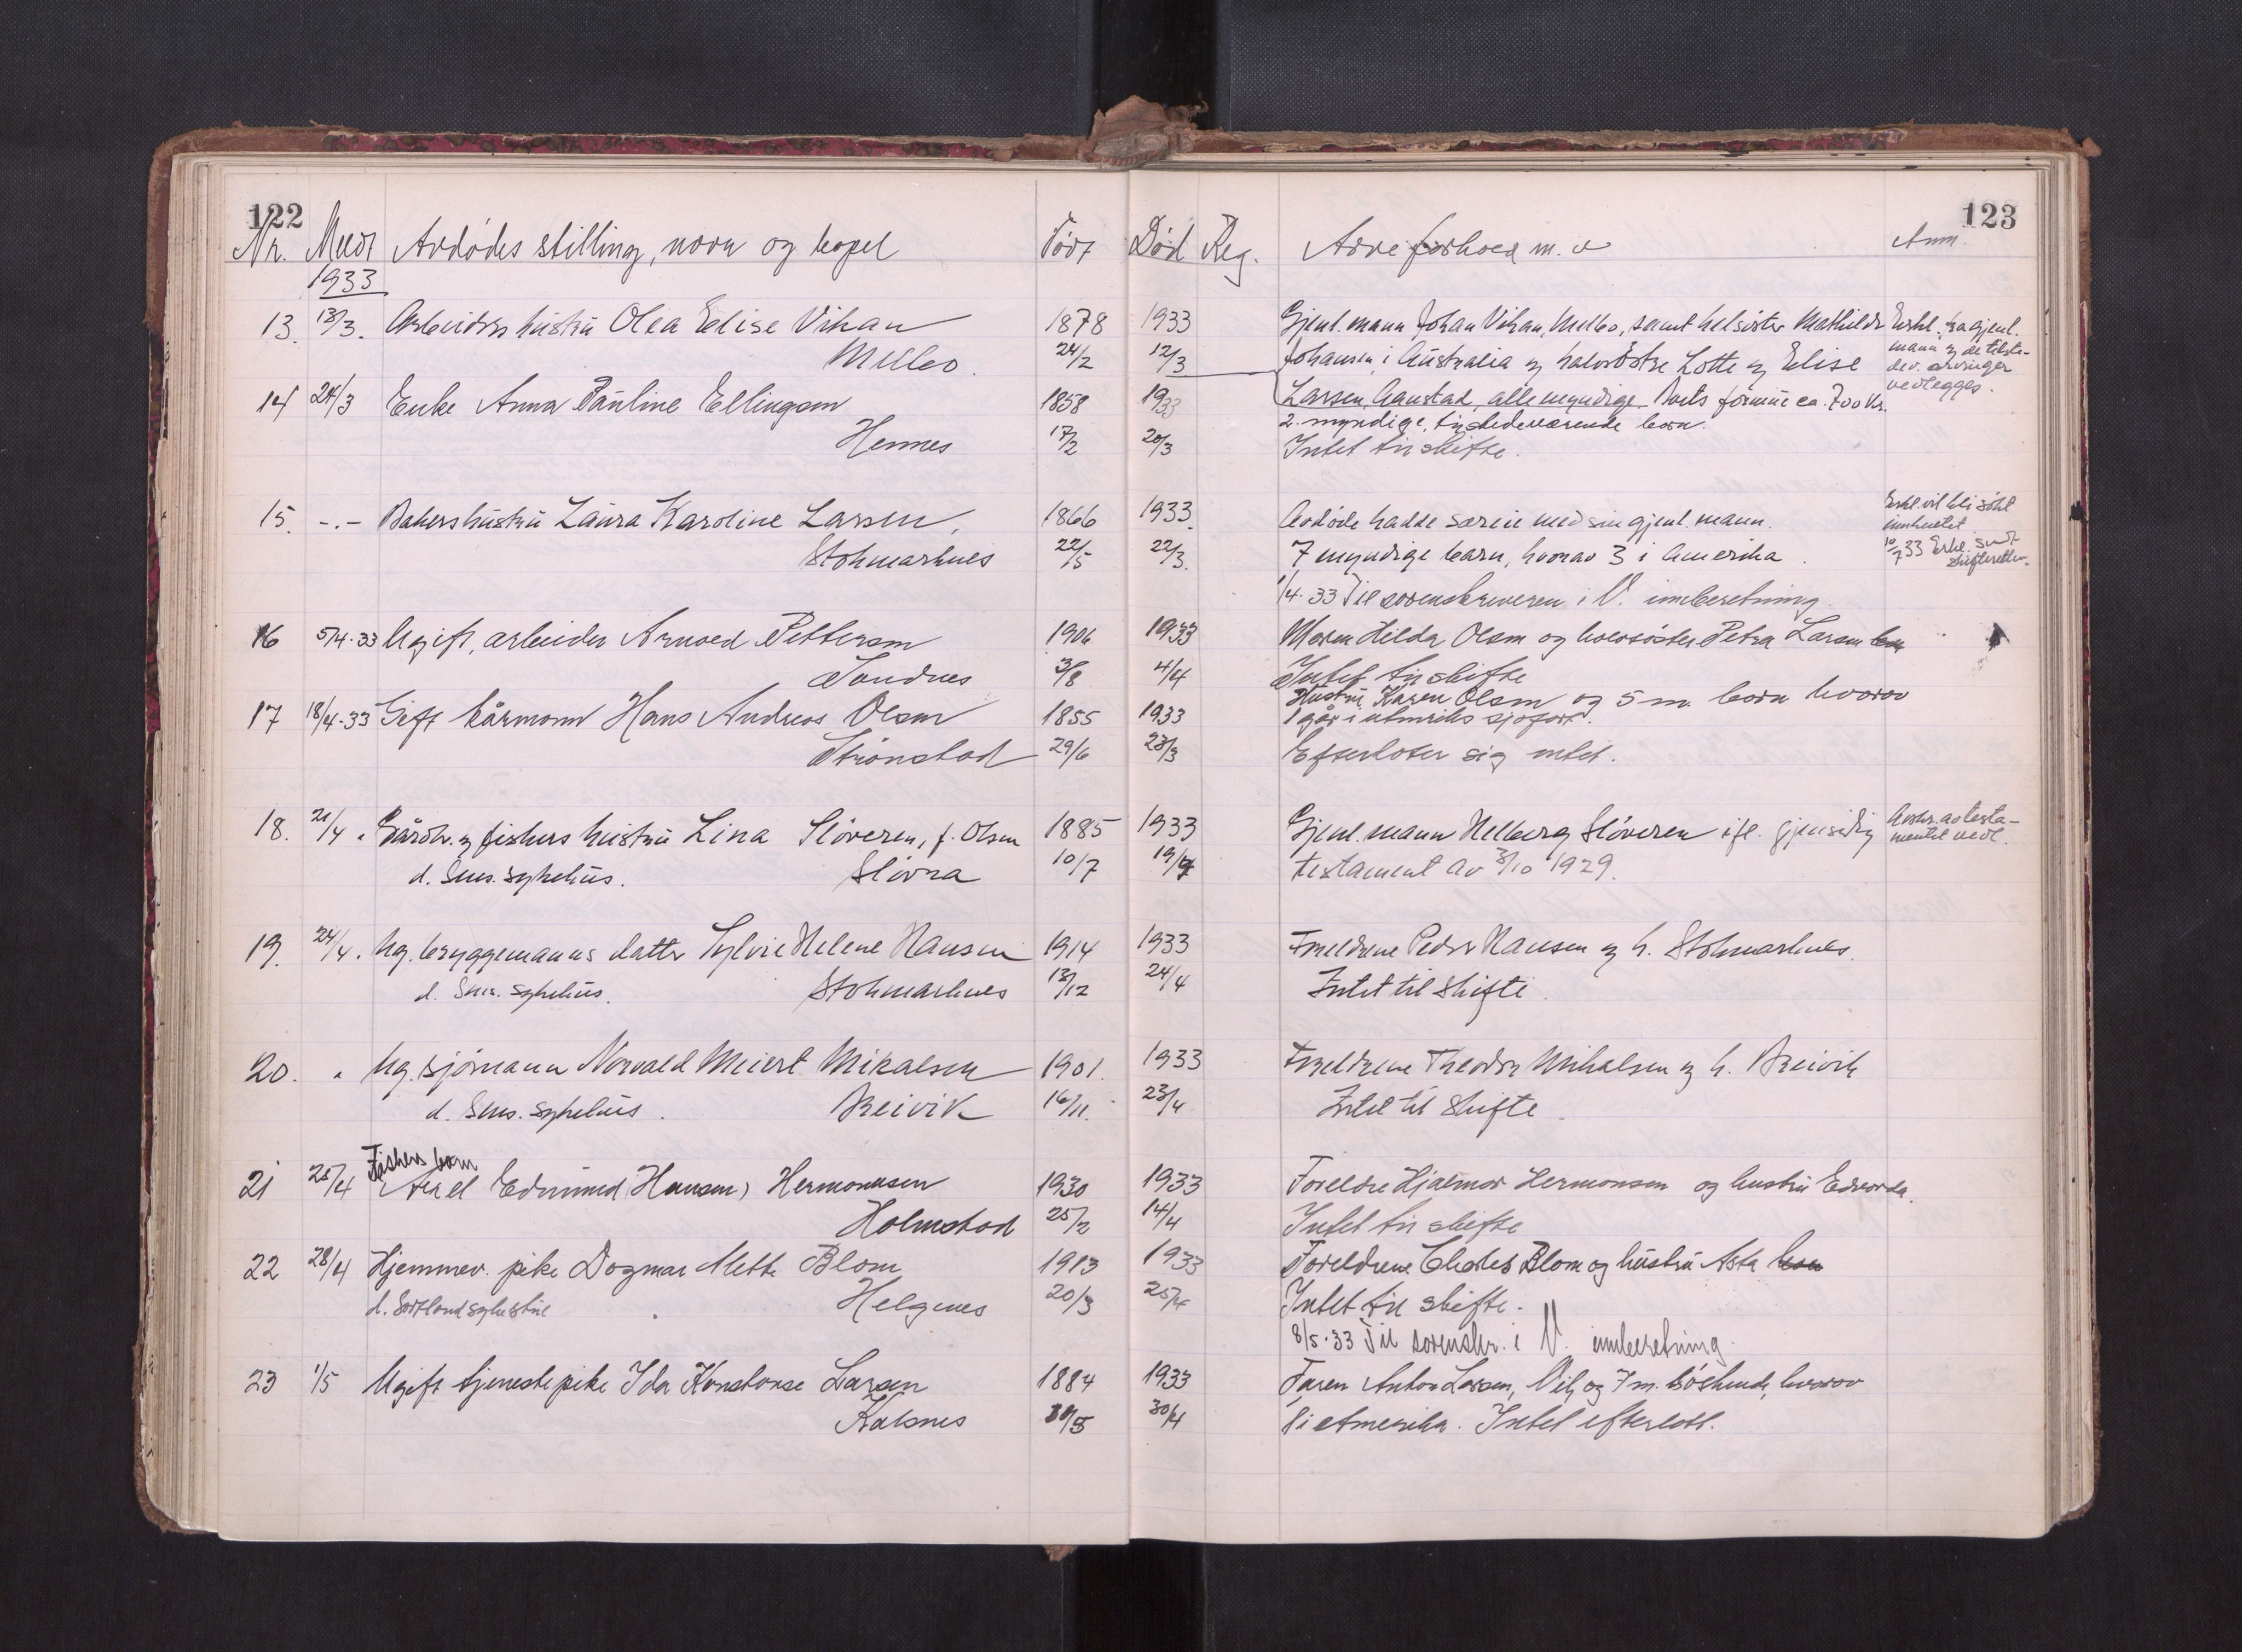 122
123
Nr. Meldt Avdødes stilling, navn og bopel Født Død Reg. Arveforhold m. v. Anm.
1933
13. 13/3. Arbeiders hustru Olea Elise Vikan 1878 1933 Gjenl. mann Johan Vikan, Melbo, samt helsöster Mathilde Erkl. fra gjenl.
Melbo. 24/2 12/3 Johansen i Australia og halvsöstre Lotte og Elise mann og de tilste-
Larsen, Aanstad, alle myndige. Boets formue ca. 700 kr. dev. arvinger
vedlegges.
14 24/3 Enke Anna Pauline Ellingsen 1858 1933 2 myndige, tilstedeværende born.
Hennes 17/2 20/3 Intet til skifte.
15. -.- Bakershustru Laura Karoline Larsen, 1866 1933 Avdöde hadde særeie med sin gjenl. mann. Erkl. vil bli sökt
Stokmarknes 22/5 22/3. 7 myndige barn, hvorav 3 i Amerika. innhentet
10/7 33 Erkl. sendt skifteretten.
1/4. 33 Til sorenskriveren i V. innberetning.
16 5/4. 33 Ugift, arbeider Arnold Pettersen 1906 1933 Moren Hilda Olsen og halvsöster Petra Larsen
Sandnes 3/8 4/4 Intet til skifte
17 18/4-33 Gift kårmann Hans Andreas Olsen 1855 1933 Hustru Karen Olsen og 5 m. born hvorav
1 går i utenriks sjøfart.
Strönstad 29/6 28/3 Efterlater sig intet.
18. 21/4 " Gårdbr. og fiskers hustru Lina Slöveren, f. Olsen 1885 1933 Gjenl. mann Helberg Slöveren ifl. gjensidig Avskr. av testa-
d. Sms. sykehus. Slövra 10/7 19/4 testament av 3/10 1929. mentet vedl.
19. 24/4. Ug. bryggemanns datter Sylvie Helene Hansen 1914 1933 Foreldrene Peder Hansen og h. Stokmarknes.
d. Sms. sykehus. Stokmarknes 13/12 24/4 Intet til skifte.
20. " Ug. sjömann Norvald Meiert Mikalsen 1901. 1933 Foreldrene Theodor Mikalsen og h. Breivik
d. Sms. sykehus. Breivik 16/11. 23/4 Intet til skifte.
Fiskers barn
21 25/4 Axel Edmund (Hansen) Hermonsen 1930 1933 Foreldre Hjalmar Hermonsen og hustru Edvarda.
Holmstad 25/2 14/4 Intet til skifte
22 28/4 Hjemmev. pike Dagmar Mette Blom 1913 1933 Foreldrene Charles Blom og hustru Asta
d. Sortland sykestue Helgenes 20/3 25/4 Intet til skifte.
8/5. 33 Til sorenskr. i V. innberetning.
23 1/5 Ugift tjenestepike Ida Konstanse Larsen 1884 1933 Faren Anton Larsen, Vik, og 7 m. söskende, hvorav
Kalsnes 30/4 1 i Amerika. Intet efterlatt.